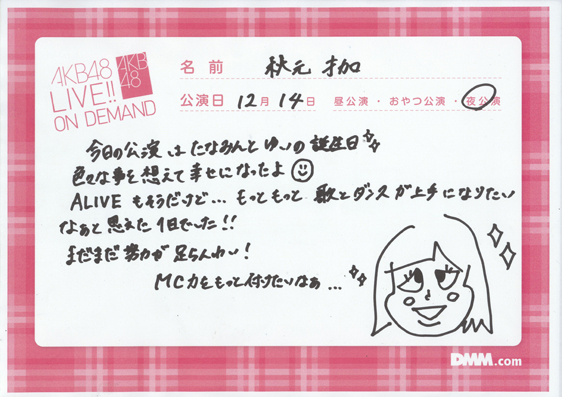 AKB48
LIVE!!
ON DEMAND
AKB
48
名前 秋元 才加
公演日 12月14日 昼公演・おやつ公演・夜公演
今日の公演はたなみんとゆいの誕生日
色々な事を想えて幸せになったよ
ALIVE もそうだけど... もっともっと 歌とダンスが上手になりたい
なぁと思えた1日でした!!
まだまだ努力が足らんわい!
MC力をもっと付けたいなぁ...
DMM.com